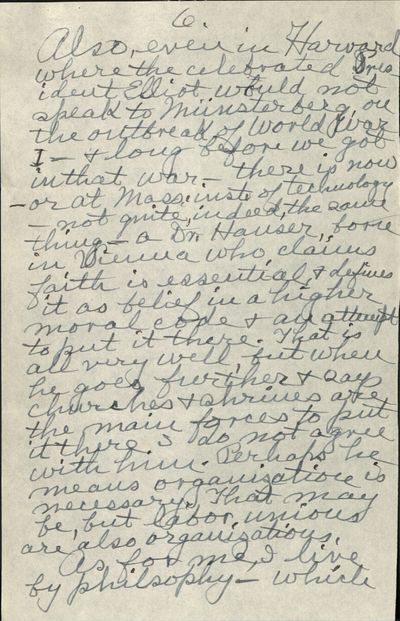 6
Also, even in Harvard
where the celebrated Pres-
ident Elliot would not
speak to Münstorberg on
the outbreak of World War
I - & long before we got
in that war - there is now
- or at Mass. inst. of Technology
- not quite, indeed, the same
thing - a Dr. Hauser, born
in Vienna who claims
faith is essential & defines
it as belief in a higher
moral code & an attempt
to put it there. That is
all very well, but when
he goes further & says
churches & shrines are
the main forces to put
it there I do not agree
with him. Perhaps he
means organization is
necessary. That may
be, but labor unions
are also organizations.
As for me, I live
by philsophy - which